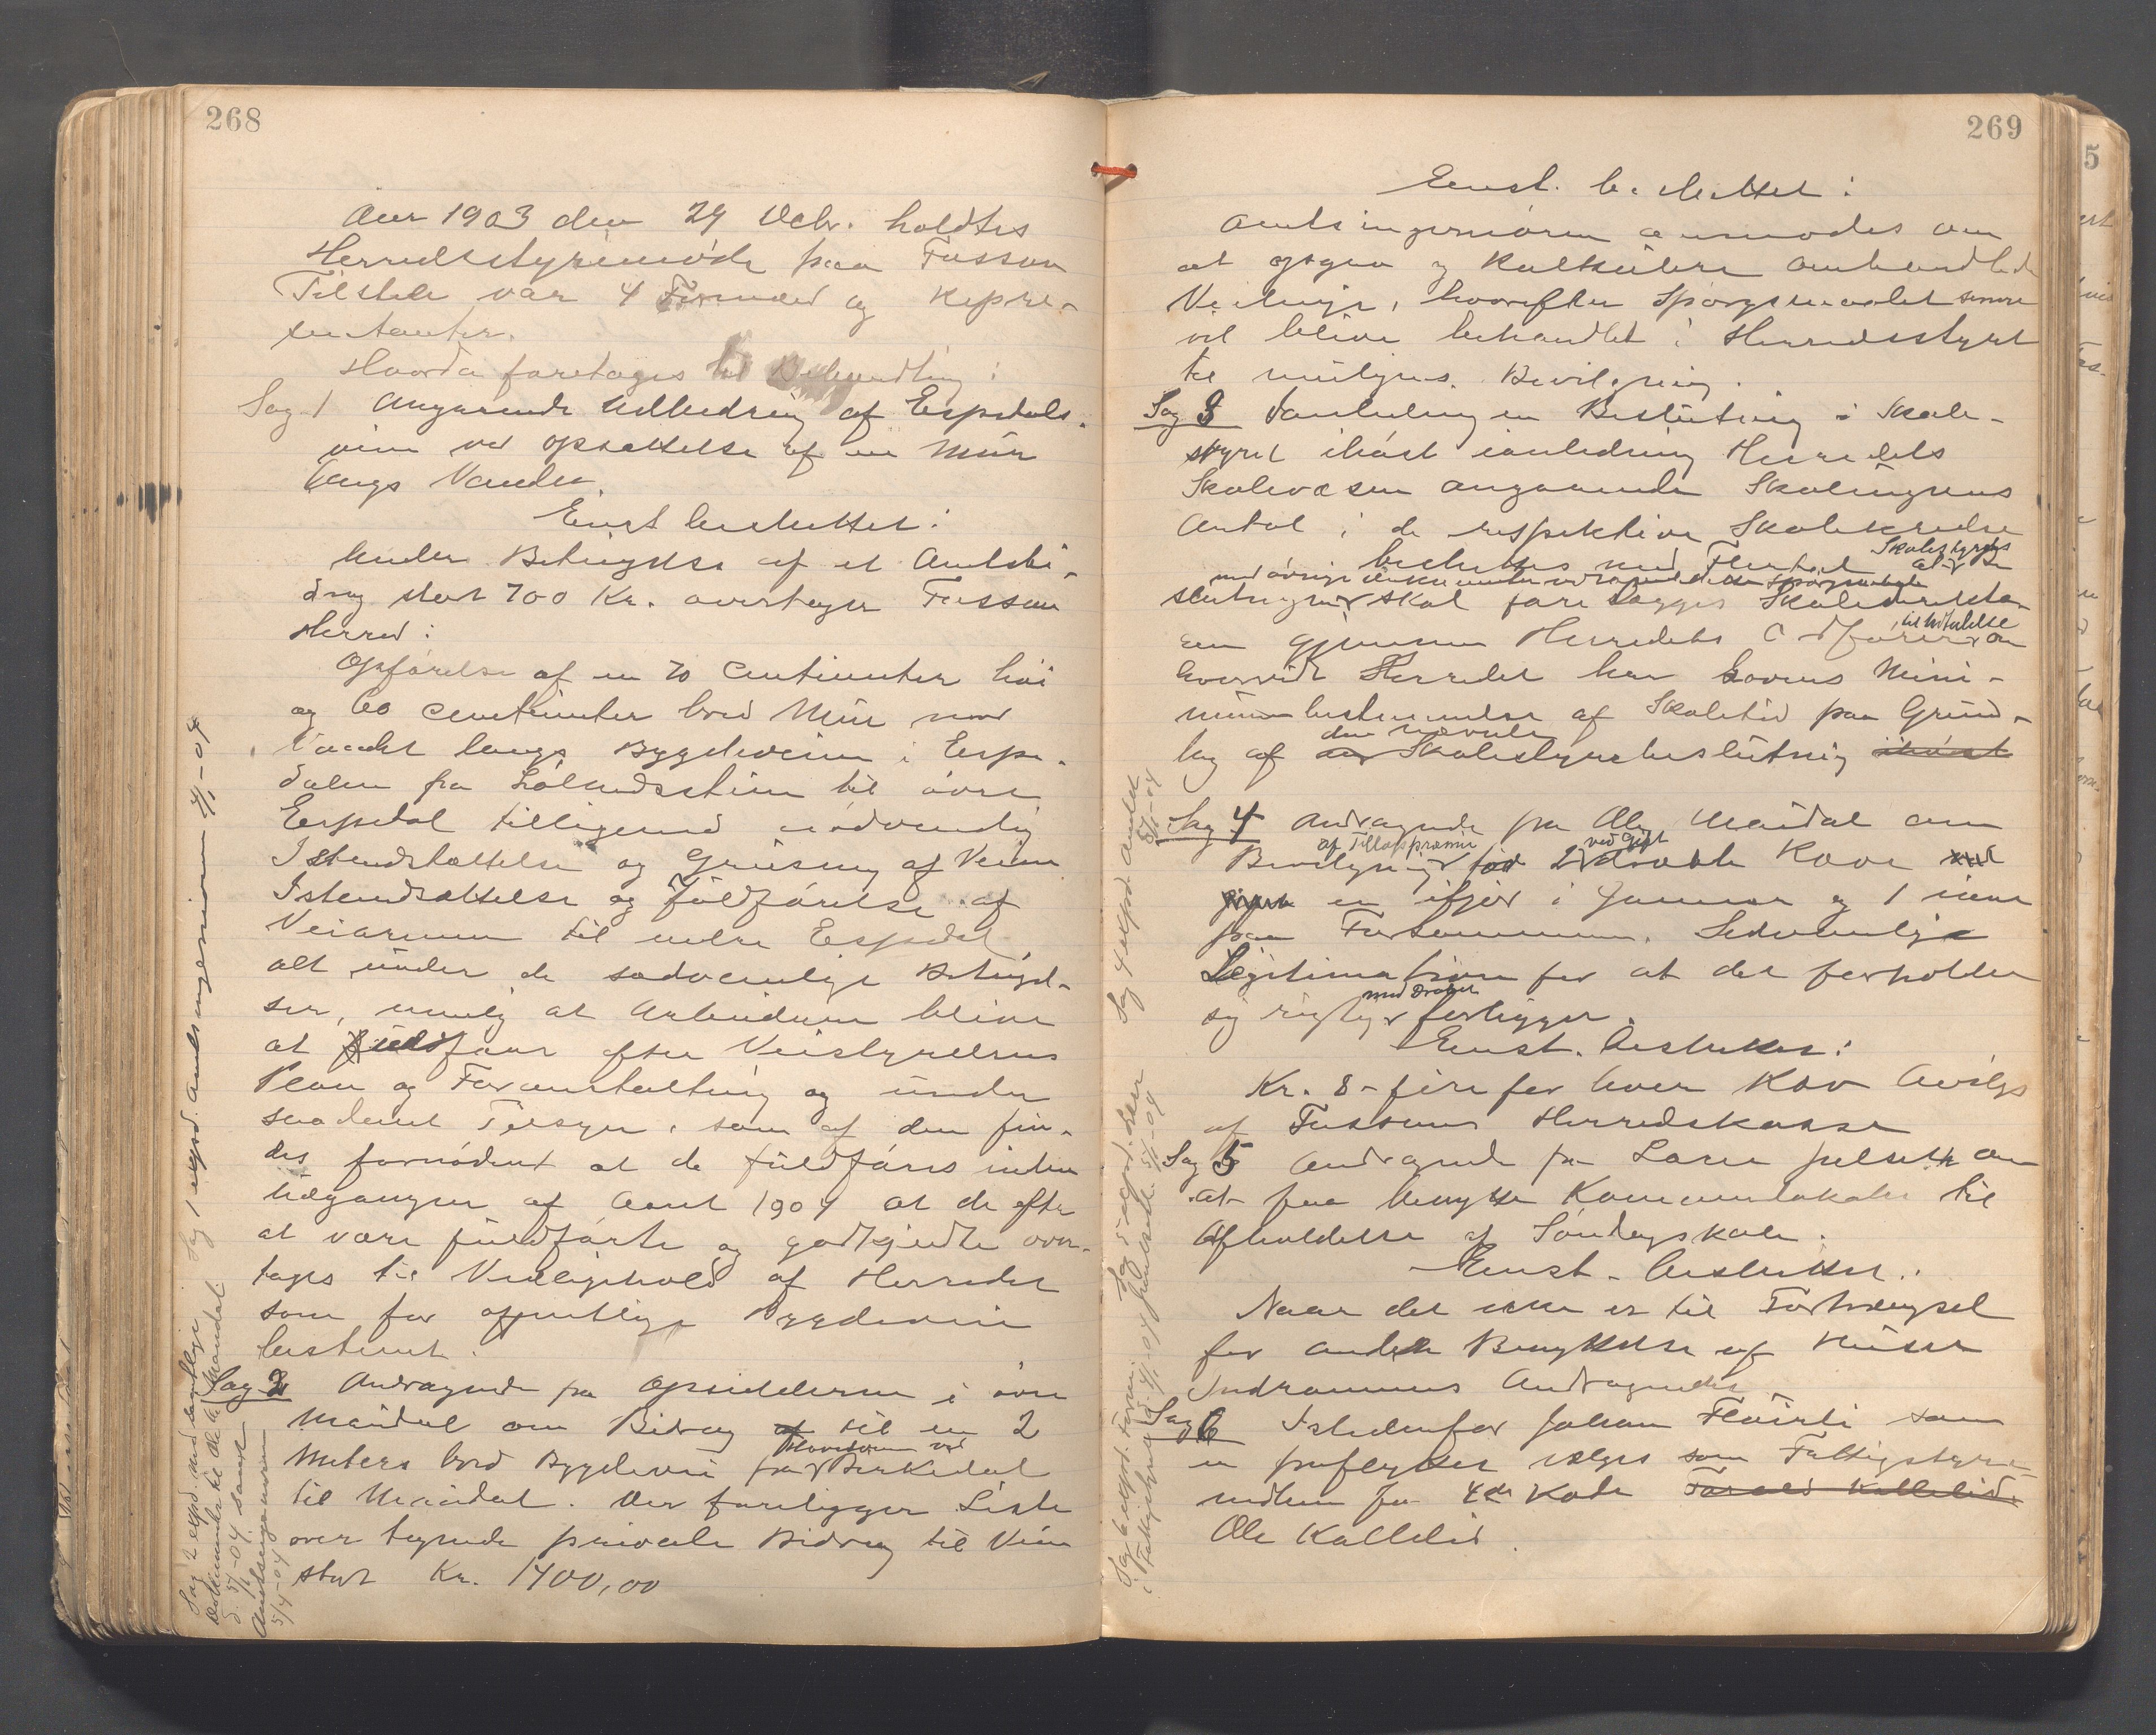 268
Aar 1903 den 29 Decbr. holdtes
Herredsstyremöde paa Fossan
Tilstede var 4 Formænd og Repræ-
sentanter.
Hvorda foretoges til Behandling:
Sag 1 Angaaende Udbedring af Espedals-
veien ved opsættelse af en Mur
langs Vandet.
Enst besluttet:
Under Betingelse af et Amtsbi-
drag stort 700 Kr. overtager Fossan
Herred:
Opförelse af en 70 Centimeter höi
og 60 centimeter bred Mur mod
Vandet langs Bygdeveien i Espe-
dalen fra Lölandsstien til övre
Espedal tilligemed nödvendig
Istandsættelse og Grusing af Veien
Istandsættelse og fuldförelse af
Veiarmen til nedre Espedal
alt under de sædvanlige Betingel-
ser, nemlig at Arbeiderne blive
at fuldföre efter Veistyrelsens
Plan og Foranstaltning og under
saadant Tilsyn, som af den fin-
des fornödent at de fuldföres inden
Udgangen af Aaret 1904 at de efter
at være fuldförte og godkjendte over-
tages til Vedligehold af Herredet
som for offentlige Bygdeveie
bestemt.
Sag 2 Andragende fra Opsidderne i övre
Maudal om Bidrag til en 2
Meters bred Bygdevei fra ved Birkedal
til Maudal. Der foreligger Liste
over tegnede private Bidrag til Veien
stort Kr. 1400,00
Sag 1 expd. Amtsingeniøren 4/1-04
Sag 2 expd. med samtlige
Dokumenter til Ole A. Maudal
d. 5/1-04 samt
Amtsingeniøren
5/1-04
269
Enst. besluttet:
Amtsingeniören anmodes om
at opgaa og kalkulere omhandlede
Veilinje, hvorefter Spörgsmaalet senere
vil blive behandlet i Herredsstyret
til muligens Bevilgning.
Sag 3 Ianledning en Beslutning i Skole-
styret ihöst ianledning Herredets
Skolevæsen angaaende Skoleugernes
Antal i de respektive Skolekredse
besluttes med Flertal at Skolestyrets Be-
med övrige Dokumenter vedrørende dette Spörgsmaal
slutninger skal forelægges Skoledirektö-
ren gjennem Herredets Ordförer til Udtalelse om
hvorvidt Herredet har Lovens Mini-
mumsbestemmelse af Skoletid paa Grund-
lag af den nævnte Skolestyrebeslutning ihöst
Sag 4 Andragende fra Ole Maudal om
Bevilgning af Tillægspræmie for 2 ved Gift dræbte Ræve ved
Gift en ifjor i Januar og 1 iaar
fra Forsommeren. Sædvanlige
Legitimation for at det forholder
sig rigtig med Drabet foreligger.
Enst. besluttes:
Kr. 8- fire for hver Ræv bevilges
af Fossans Herredskasse
Sag 5 Andragende fra Lars Julseth om
at faa benytte Kommunelokalet til
Afholdelse af Söndagskole.
Enst. besluttet:
Naar det ikke er til Fortrængsel
for anden Benyttelse af Huset
indrömmes Andragendet
Sag 6 Istedenfor Johan Flöirli som
er fraflyttet vælges som Fattigstyre-
medlem for 4de Rode Torald Kallelid
Ole Kallelid.
Sag 4 expd. Amtet
5/1-04
Sag 5 expd. Lars
Julseth 5/1-04
Sag 6 expd. Formd.
i Fattigstyret d. 4/1-04
5